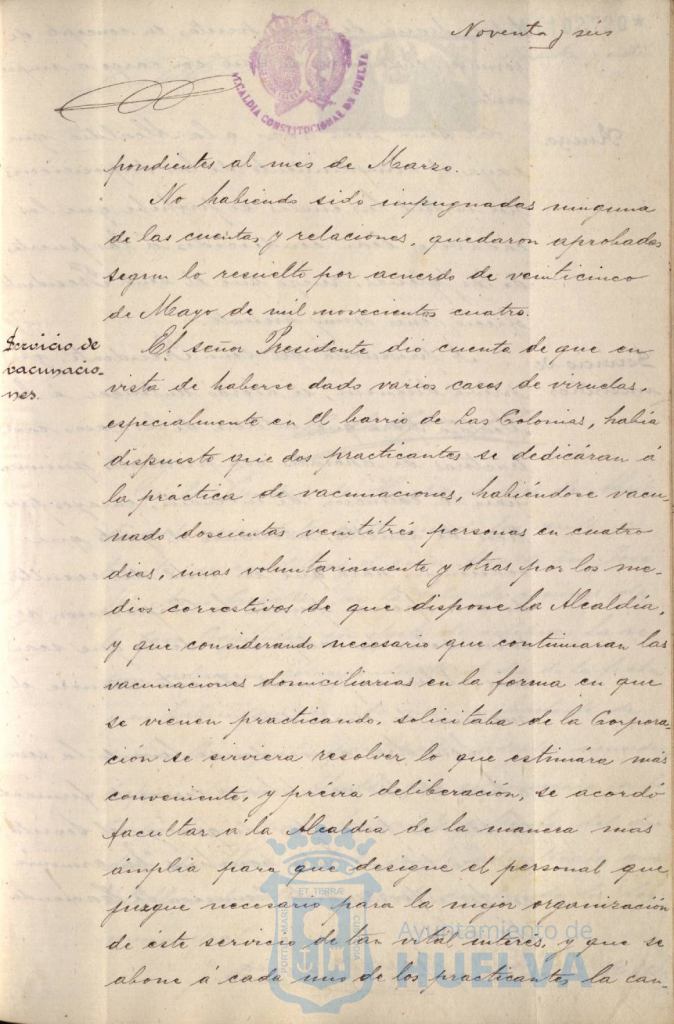 Noventa y seis
ALCALDIA CONSTITUCIONAL DE HUELVA
pondientes al mes de Marzo.
No habiendo sido impugnadas ninguna
de las cuentas y relaciones, quedaron aprobadas
segun lo resuelto por acuerdo de veinticinco
de Mayo de mil novecientos cuatro.
Servicio de
vacunacio-
nes.
El señor Presidente dió cuenta de que en
vista de haberse dado varios casos de viruelas,
especialmente en el barrio de Las Colonias, había
dispuesto que dos practicantes se dedicáran á
la práctica de vacunaciones, habiéndose vacu-
nado doscientas veintitrés personas en cuatro
dias, unas voluntariamente y otras por los me-
dios correctivos de que dispone la Alcaldía,
y que considerando necesario que continuaran las
vacunaciones domiciliarias en la forma en que
se vienen practicando, solicitaba de la Corpora-
ción se sirviera resolver lo que estimára más
conveniente, y prévia deliberación, se acordó
facultar á la Alcaldía de la manera más
ámplia para que designe el personal que
juzgue necesario para la mejor organización
de éste servicio de tan vital interés, y que se
abone á cada uno de los practicantes la can-
PORTUS MARIS ET TERRÆ CUSTODIA
Ayuntamiento de
HUELVA